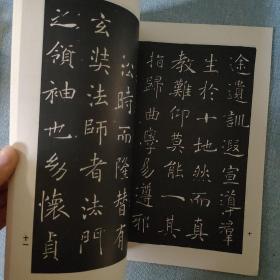 途遺訓遐宣導群
生於十地然而真
教難仰莫能一其
指歸曲學易遵邪
十
訟時而隆替有
玄奘法師者法門
之領袖也幼懷貞
十一